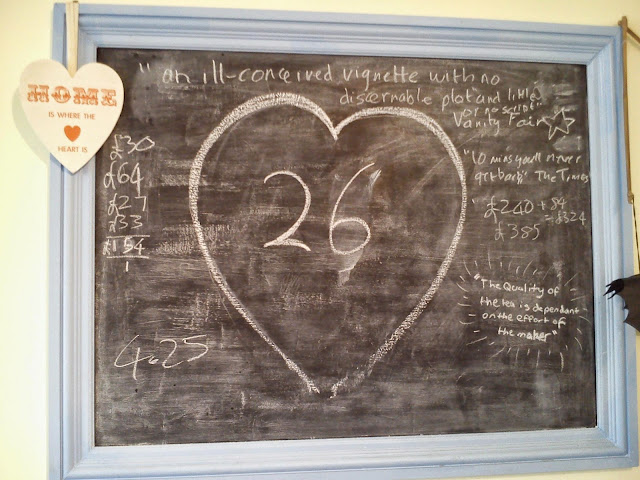 HOME
IS WHERE THE
HEART IS
"an ill-conceived vignette with no
discernable plot and little
or no script"
Vanity Fair
"10 mins you'll never
get back" The Times
£30
£64
£27
£33
£154
1
26
£240 + 84
= £324
£385
"The Quality of
the tea is dependant
on the effort of
the maker"
4.25